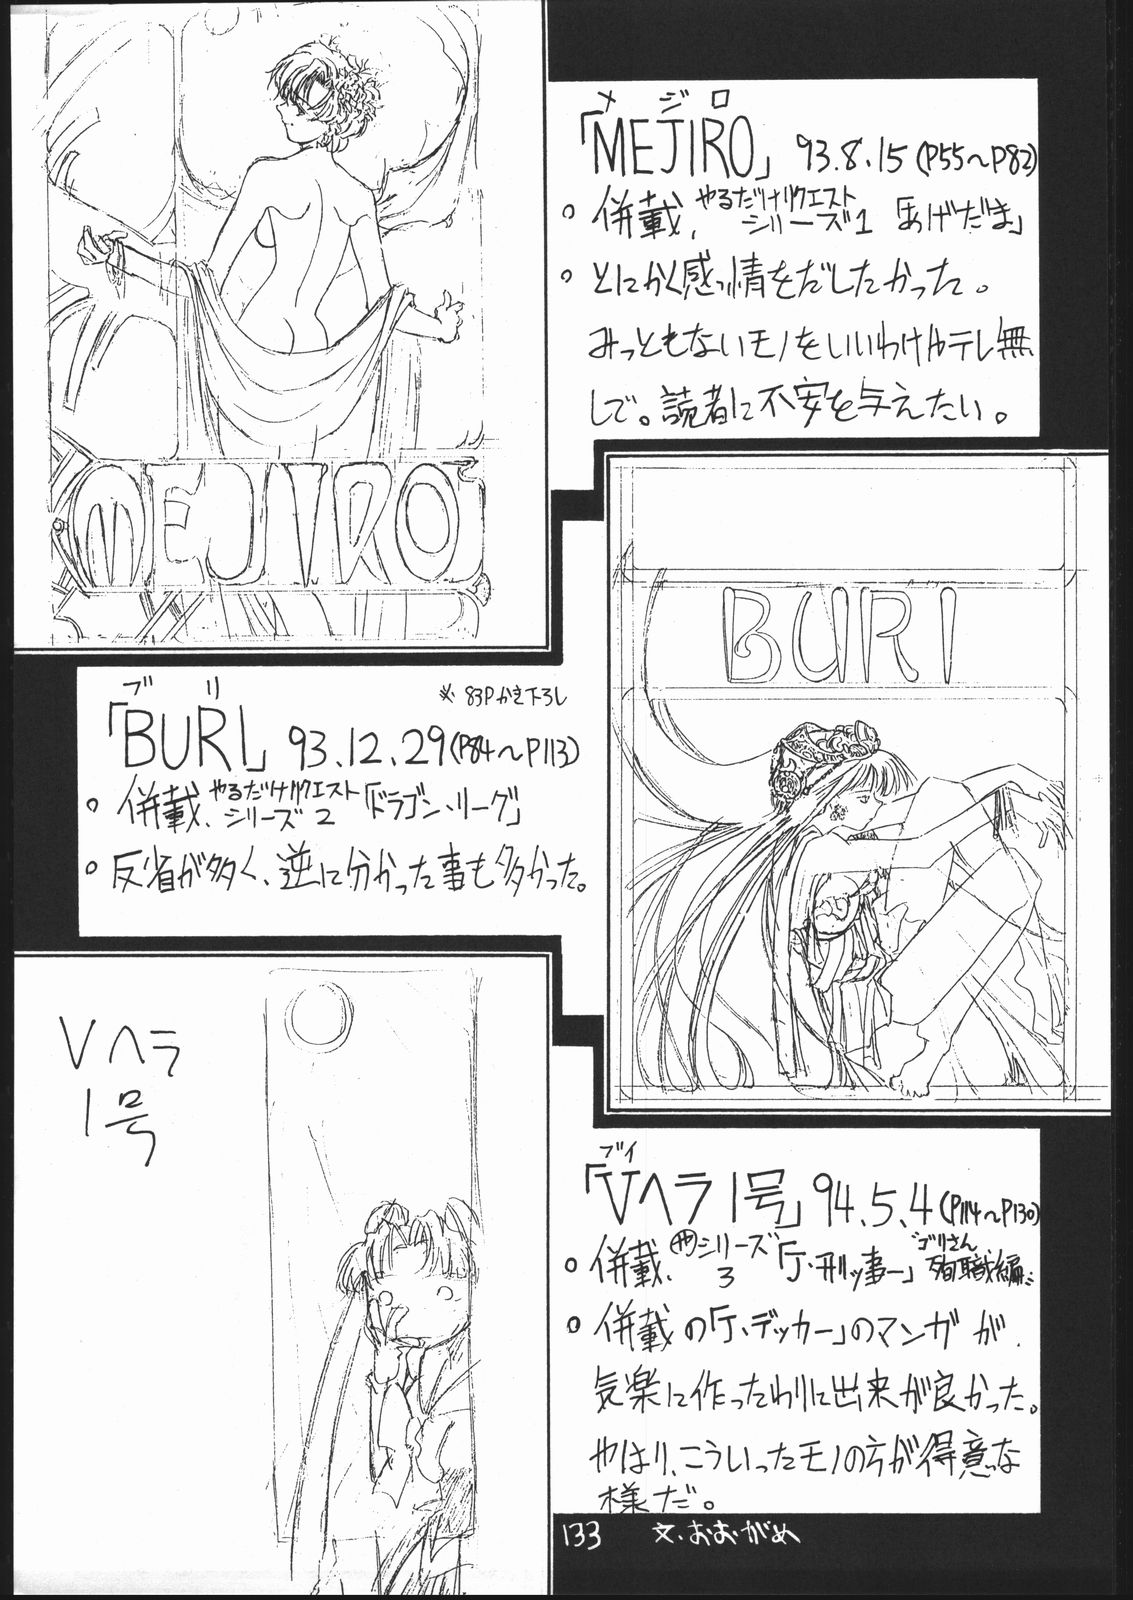 メジロ
「MEJIRO」 93.8.15 (P55〜P82)
。併載、やるだけリクエスト
シリーズ1 「あげだま」
。とにかく感情をだしたかった。
みっともないモノをいいわけやテレ無
しで。読者に不安を与えたい。
MEJIRO
BURI
ブリ
※ 83Pかき下ろし
「BURI」 93.12.29 (P84〜P113)
。併載、やるだけリクエスト
シリーズ2 「ドラゴン・リーグ」
。反省が多く、逆に分かった事も多かった。
Vヘラ
1号
ブイ
「Vヘラ1号」 94.5.4 (P114〜P130)
。併載、シリーズ3 「J・刑ッ事ー」 ゴリさん殉職編
。併載の「J・デッカー」のマンガが、
気楽に作ったわりに出来が良かった。
やはり、こういったモノの方が得意な
様だ。
133 文・おおがめ